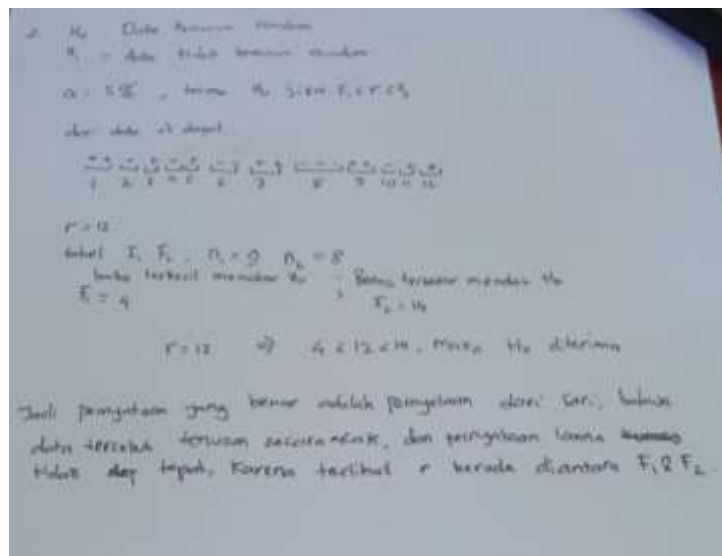 2. H₀ Data tersusun random
H₁ = data tidak tersusun random
α = 5% , terima H₀ bila F₁ < r < F₂
dari data di dapat
1 2 3 4 5 6 7 8 9 10 11 12
r = 12
tabel F₁ F₂ , n₁ = 9 n₂ = 8
batas terkecil menolak H₀ ; Batas terbesar menolak H₀
F₁ = 4 F₂ = 14
r = 12 => 4 < 12 < 14 , maka H₀ diterima
Jadi pernyataan yang benar adalah pernyataan dari Sari, bahwa
data tersebut tersusun secara acak, dan pernyataan Lanna
tidak tepat, Karena terlihat r berada diantara F₁ & F₂.